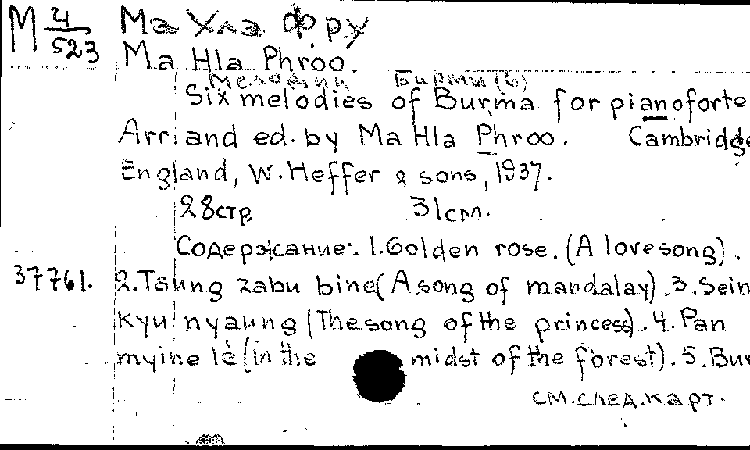 М 4/523 Ма Хла Фру
Ma Hla Phroo.
Мелодии Бирмы (6)
Six melodies of Burma for pianoforte
Arr. and ed. by Ma Hla Phroo. Cambridge
England, W. Heffer & sons, 1937.
28 стр 31 см.
Содержание: 1. Golden rose. (A love song).
37761. 2. Taung zabu bine (A song of mandalay). 3. Sein
Kyu nyaung (The song of the princess). 4. Pan
myine lè (in the midst of the forest). 5. Bur
см. след. карт.